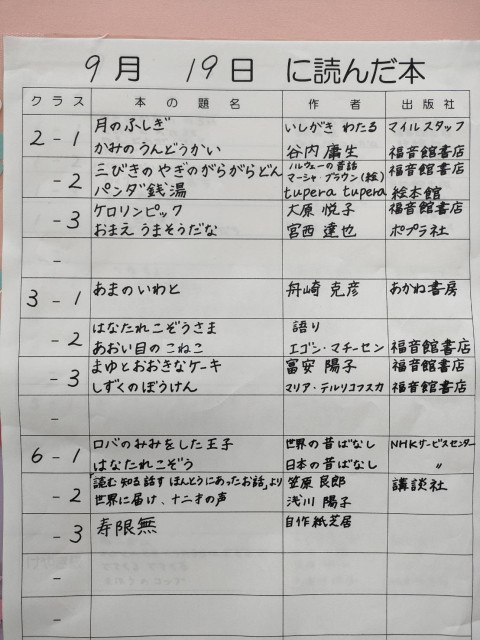 9月 19日 に読んだ本
クラス 本の題名 作者 出版社
2-1 月のふしぎ いしがき わたる マイルスタッフ
かみのうんどうかい 谷内庸生 福音館書店
-2 三びきのやぎのがらがらどん ノルウェーの昔話 マーシャ・ブラウン(絵) 福音館書店
パンダ銭湯 tupera tupera 絵本館
-3 ケロリンピック 大原 悦子 福音館書店
おまえ うまそうだな 宮西 達也 ポプラ社
-
3-1 あまのいわと 舟崎 克彦 あかね書房
-2 はなたれこぞうさま 語り
あおい目のこねこ エゴン・マチーセン 福音館書店
-3 まゆとおおきなケーキ 富安 陽子 福音館書店
しずくのぼうけん マリア・テルリコフスカ 福音館書店
-
6-1 ロバのみみをした王子 世界の昔ばなし NHKサービスセンター
はなたれこぞう 日本の昔ばなし 〃
-2 「読む知る話す ほんとうにあったお話」より 笠原 良郎 講談社
世界に届け、十二才の声 浅川 陽子
-3 寿限無 自作紙芝居
-
-